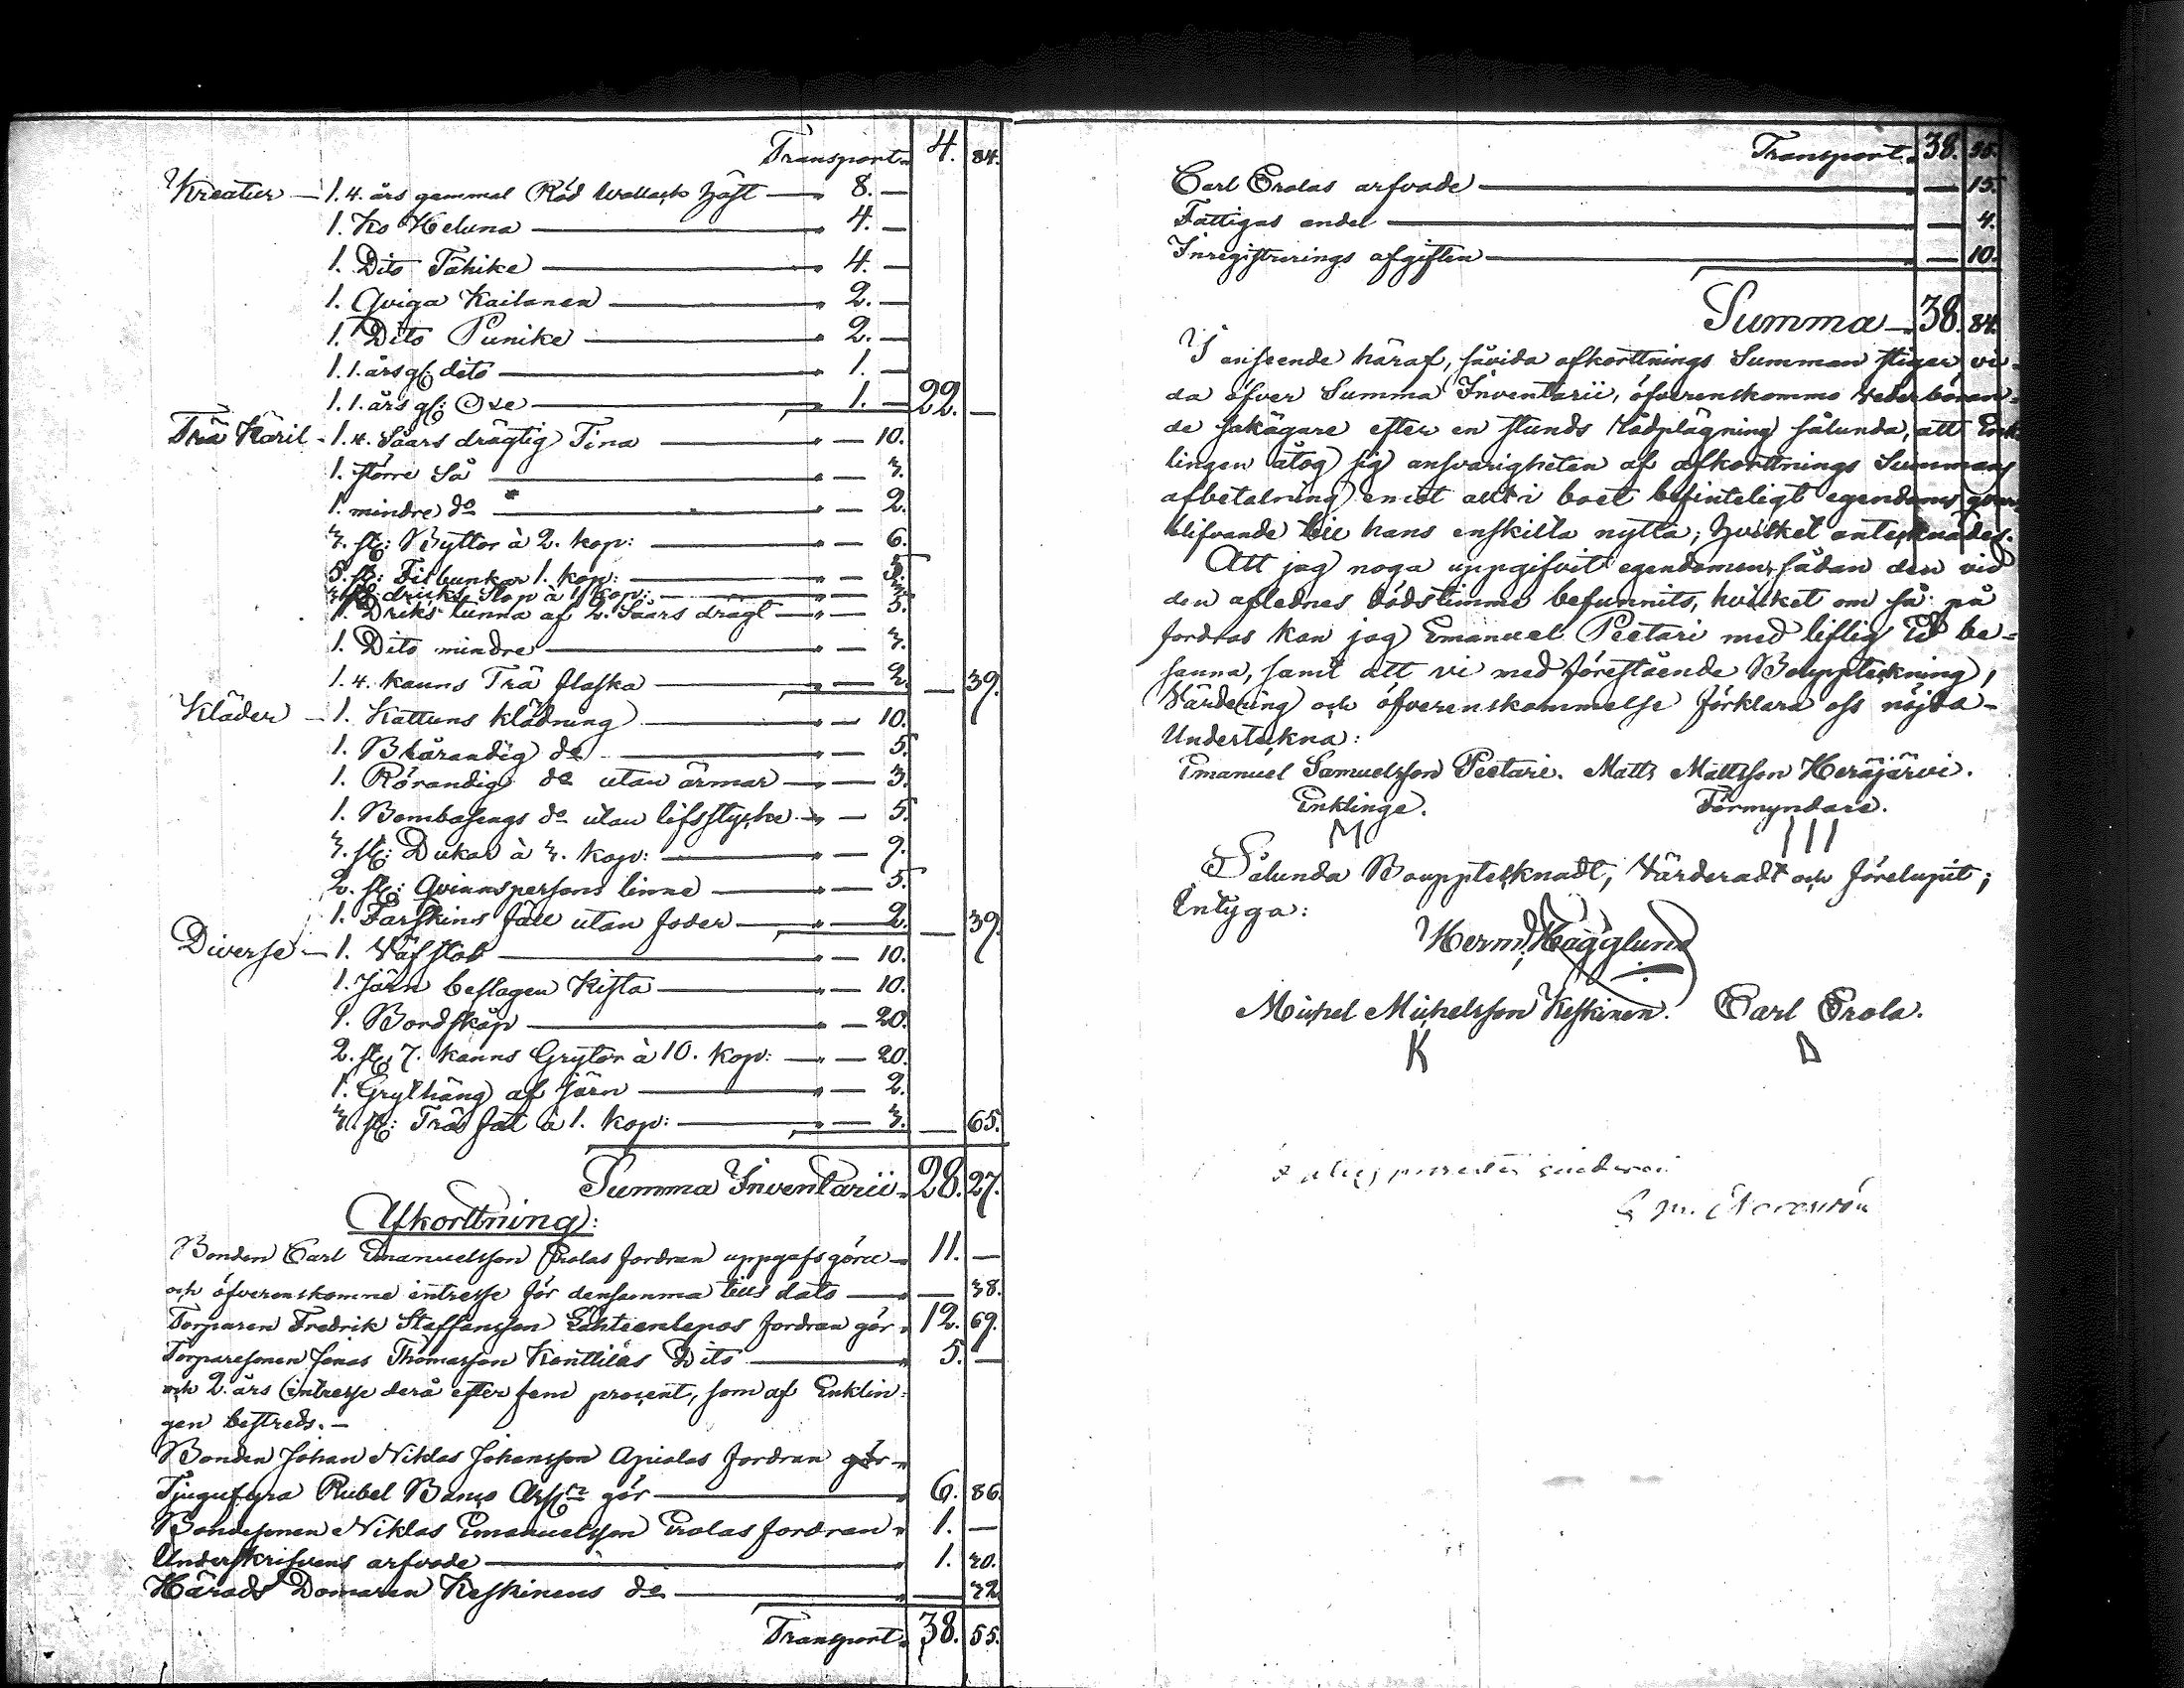 Transport. 4. 84.
Kreatur — 1. 4. års gammal Röd Wallack Häst — 8. —
1. Ko Heluna — 4. —
1. Dito Tähike — 4. —
1. Qviga Kailanen — 2. —
1. Dito Punike — 2. —
1. 1. års gl: dito — 1. —
1. 1. års gl: Oxe — 1. — 22. —
Trä Käril - 1. 4. Såars drägtig Tina — 10.
1. större Så — 3.
1. mindre do — 2.
3. st: Byttor à 2. kop: — 6.
5. st: Filbunkar 1. kop: — 5.
3. st: dricks Stop à 1 kop: — 3.
1. Driks tunna af 2. Såars drägt — 5.
1. Dito mindre — 3.
1. 4. kanns Trä flaska — 2. — 39.
Kläder — 1. Kattuns klädning — 10.
1. Blårandig do — 5.
1. Rörandig do utan ärmar — 3.
1. Bombasengs do utan lifsstycke — 5.
3. st: Dukar à 3. kop: — 9.
2. st: Qvinnspersons linne — 5.
1. Fårskins fäll utan foder — 2. — 39.
Diverse — 1. Väfstol — 10.
1. Järn beslagen Kista — 10.
1. Bordskåp — 20.
2. st: 7. kanns Grytor à 10. kop: — 20.
1. Grythäng af järn — 2.
3. st: Trä fat à 1. kop: — 3. — 65.
Summa Inventarii. 28. 27.
Afkorttning:
Bonden Carl Emanuelsson Erolas fordran uppgafs göra — 11. —
och öfverenskomne intresse för densamma tills dato — 38.
Torparen Fredrik Staffansson Lähteenlepos fordran gör 12. 69.
Torparesonen Jonas Thomasson Konttilas Dito — 5. —
och 2. års intresse derå efter fem procent, som af Enklin=
gen bestreds. —
Bonden Johan Niklas Johansson Apialas fordran gör
Tjugufyra Rubel Banco Assgr gör — 6. 86.
Bondesonen Niklas Emanuelsson Erolas fordran 1. —
Underskrifvens arfvode — 1. 30.
Härads Domaren Keskinens do — 32.
Transport. 38. 55.
Transport. 38. 55.
Carl Erolas arfvode — 15.
Fattigas andel — 4.
Inregistrerings afgiften — 10.
Summa — 38. 84.
I anseende häraf, såvida afkorttnings Summan stiger vi-
da öfver Summa Inventarii, öfverenskommo vederböran=
de sakägare efter en stunds rådplägning sålunda, att Enk-
lingen åtog sig ansvarigheten af afkorttnings Summans
afbetalning emot allt i boet befinteligt egendoms qvar-
blifvande till hans enskilta nytta; hvilket antecknades.
Att jag noga uppgifvit egendomen, sådan den vid
den aflednes dödstimme befunnits, hvilket om så på
fordras kan jag Emanuel Peetari med liflig Ed be=
sanna, samt att vi med förestående Bouppteckning,
Värdering och öfverenskommelse förklara oss nöjda —
Undertekna:
Emanuel Samuelsson Peetari. Matts Mattsson Heräjärvi.
Enklinge. Förmyndare.
M III
Sålunda Boupptecknadt, Värderadt och förelupit;
Intyga:
Herm. Hägglund
Michel Michelsson Keskinen. Carl Erola.
K